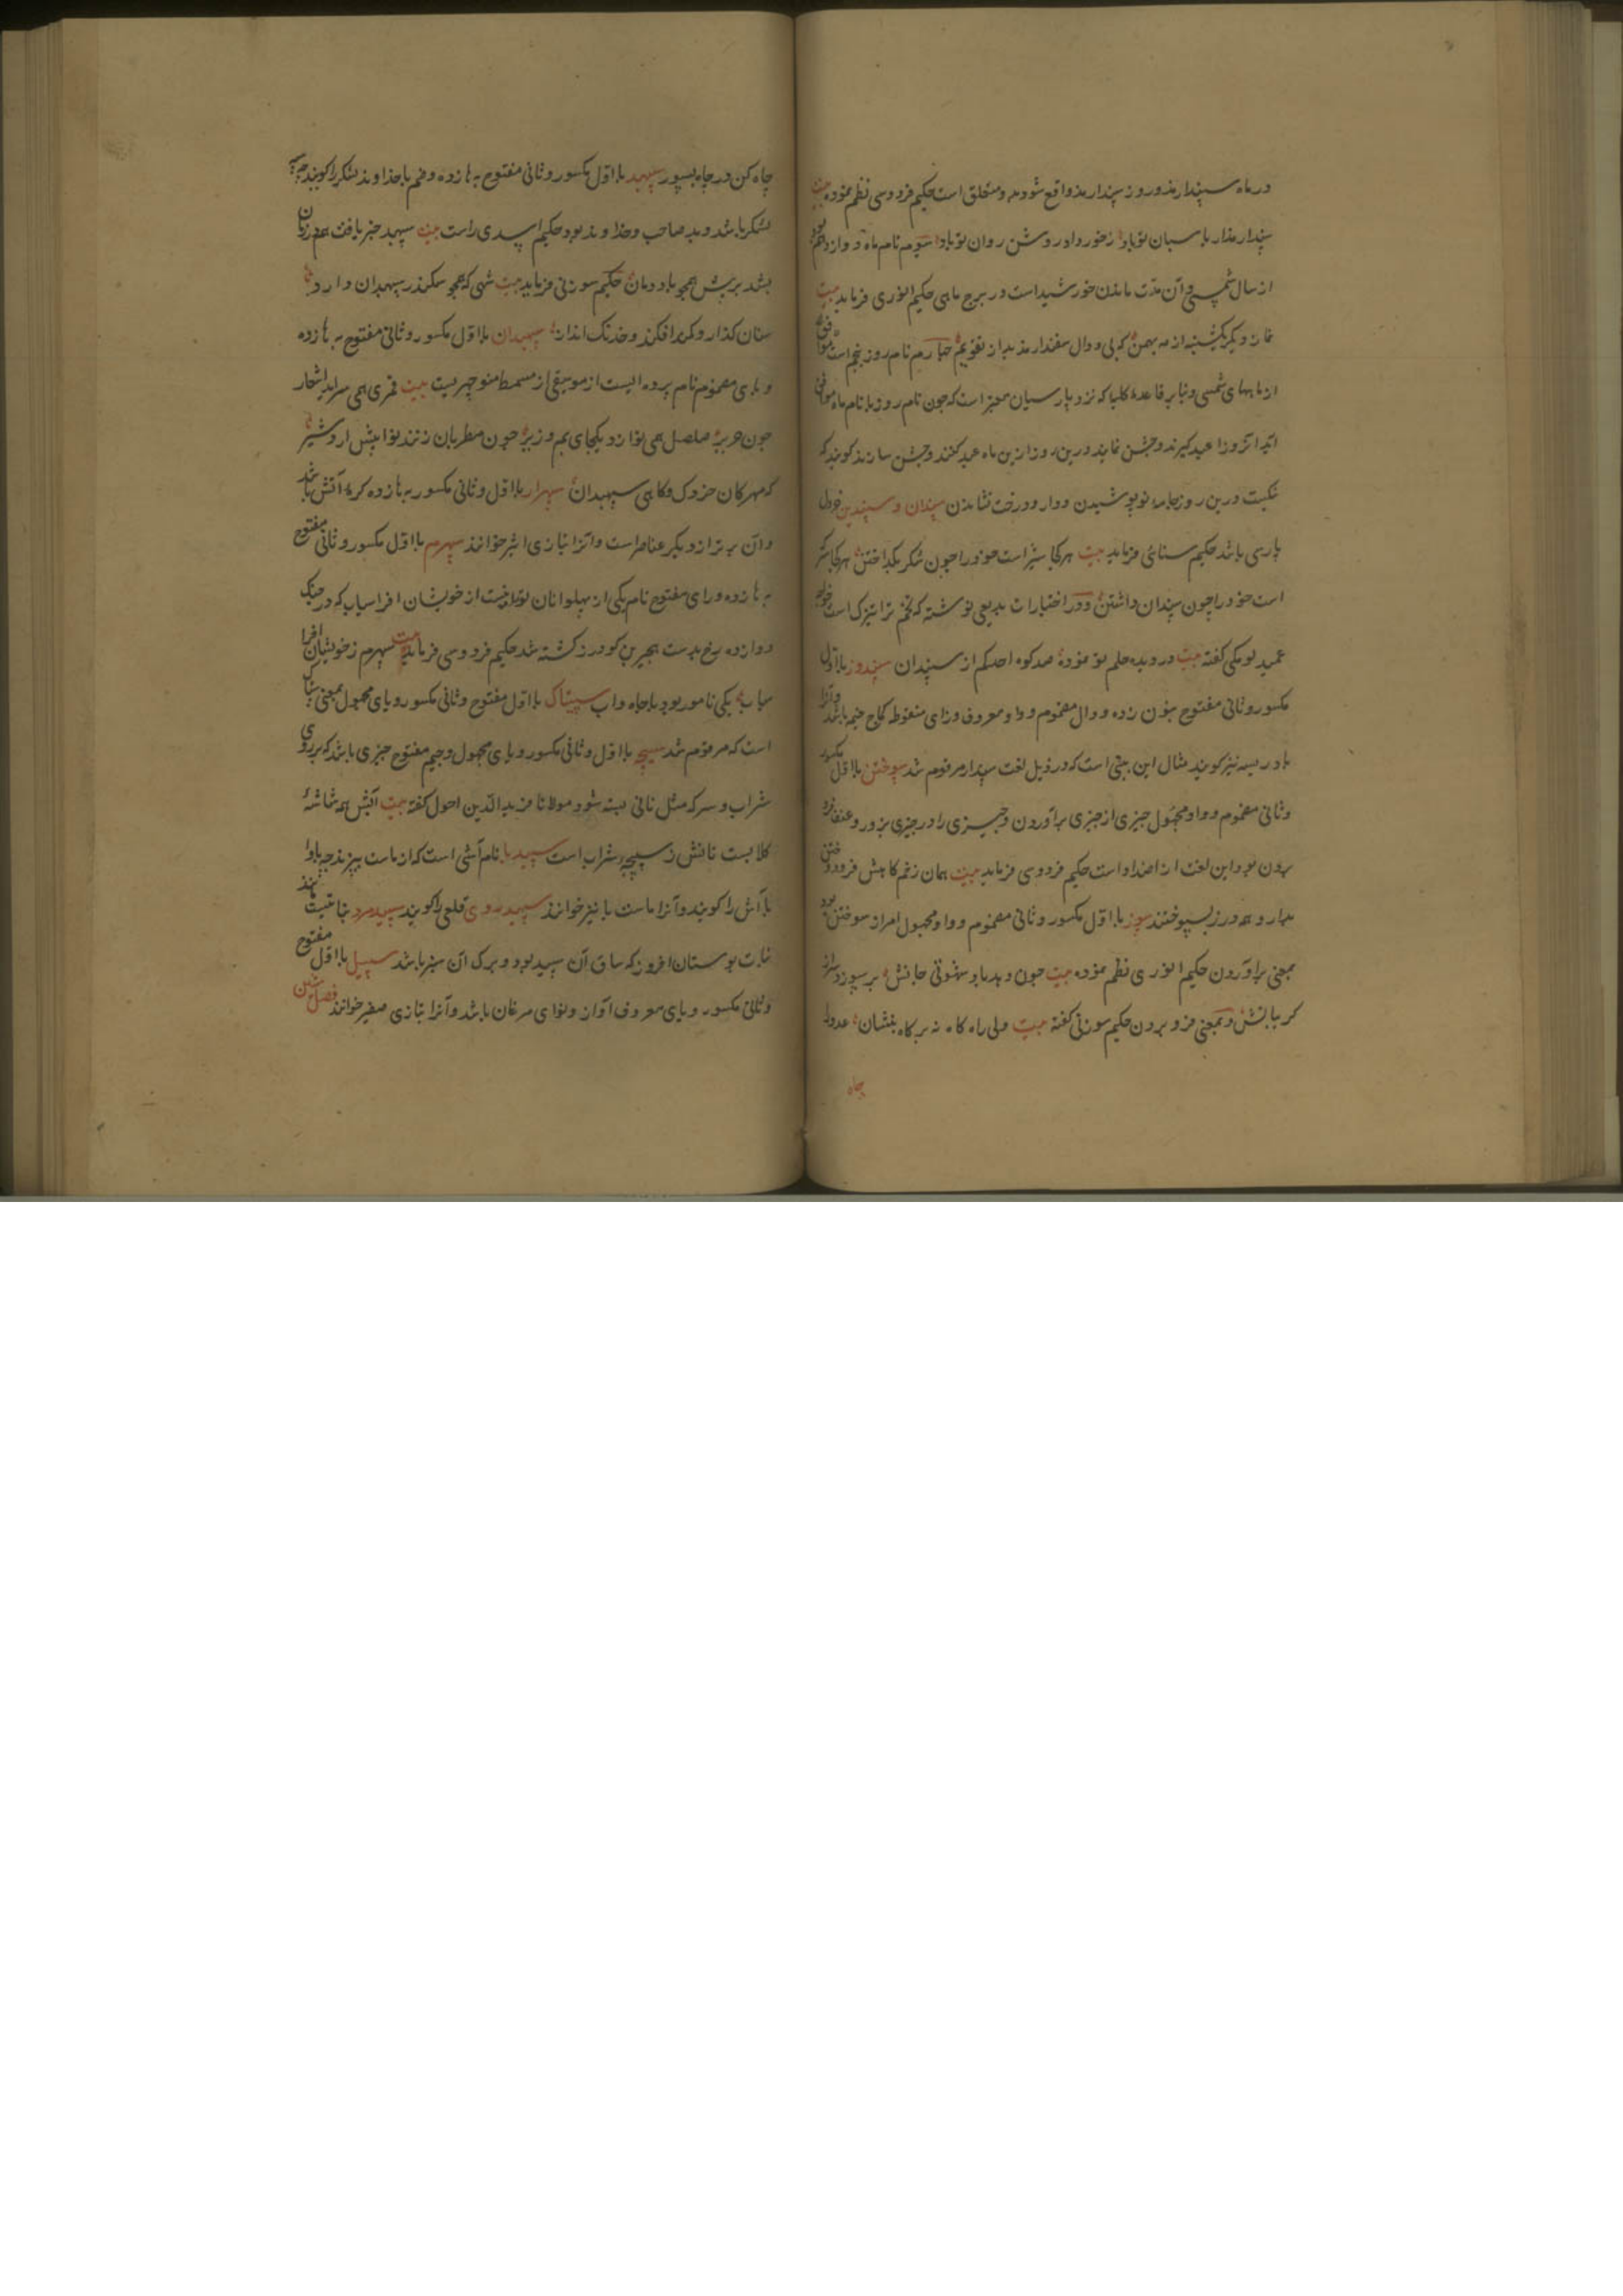 در ماه سپندارمذ و روز سپندارمذ واقع شود بدو متعلق است حکیم فردوسی نظم نموده بیت
سپندارمذ پاسبان تو باد ز خورداد روشن روان تو باد سوم نام ماه دوازدهم بود
از سال شمسی و آن مدت ماندن خورشید است در برج ماهی حکیم انوری فرماید بیت
نماز دیگر یکشنبه از مه بهمن که بی و دال سفندارمذ بد از تقویم چهارم نام روز پنجم است
از ماههای شمسی و بنابر قاعده کلیه که نزد پارسیان معتبر است که چون نام روز با نام ماه موافق
آید آنروز را عید گیرند و جشن نمایند درین روز ازین ماه عید کنند و جشن سازند گویند که
نیکست درین روز جامه نو پوشیدن و درخت نشاندن سپندان و سپندین خردل
پارسی باشد حکیم سنائی فرماید بیت هر کجا شیر است خود را چون شکر بگداختن هر کجا سرکه
است خود را چون سپندان داشتن و در اختیارات بدیعی نوشته که تخم ترا تیزک است خواجه
عمید لومکی گفته بیت در دیده حلم تو نموده صد کوه احد کم از سپندان سپندوز با اول
مکسور و ثانی مفتوح بنون زده و دال مضموم و واو معروف و زای منقوطه کماج خیمه باشد و آنرا
بادریسه نیز گویند مثال این بیتی است که در ذیل لغت سپندار مرقوم شد سپوختن با اول مکسور
و ثانی مضموم و واو مجهول چیزی از چیزی برآوردن و چیزی را در چیزی بزور و عنف فرو
بردن بود و این لغت از اضداد است حکیم فردوسی فرماید بیت همان زخم گاهش فرو دوختن
بدارو همه درز بسپوختند سپوز با اول مکسور و ثانی مضموم و واو مجهول امر از سپوختن بود
بمعنی برآوردن حکیم انوری نظم نموده بیت چون دید باد شهوتی جانش بر سپوزد سر از
گریبانش و بمعنی فرو بردن حکیم سوزنی گفته بیت ولی راه گاه نه بر گاه بنشان عدو را
چاه
چاه کن در چاه بسپوز سپهبد با اول مکسور و ثانی مفتوح به ها زده و ضم با خداوند لشکر را گویند چه سپه
لشکر باشد و بد صاحب و خداوند بود حکیم اسدی راست بیت سپهبد خبر یافت هم در زمان
بشد برپیش همچو باد دمان حکیم سوزنی فرماید بیت شهی که همچو سکندر سپهبدان دارد
سنان گذار و کمر افکن و خدنگ انداز سپهبدان با اول مکسور و ثانی مفتوح به ها زده
و بای مضموم نام پرده ایست از موسیقی از مسمط منوچهریست بیت قمری همی سراید اشعار
چون جریر صلصل همی نوازد یکجای بم و زیر چون مطربان زنند نوا پیش اردشیر
که مهرگان خردک و گاهی سپهبدان سپهرار با اول و ثانی مکسور به ها زده کره آتش باشد
و آن برتر از دیگر عناصر است و آنرا بتازی اثیر خوانند سپهرم با اول مکسور و ثانی مفتوح
به ها زده و رای مفتوح نام یکی از پهلوانان تورانیست از خویشان افراسیاب که در جنگ
دوازده رخ بدست هجیر بن گودرز کشته شد حکیم فردوسی فرماید بیت سپهرم ز خویشان افرا
سیاب یکی نامور بود با جاه و آب سپیتاک با اول مفتوح و ثانی مکسور و یای مجهول بمعنی سپتاک
است که مرقوم شد سپیچه با اول و ثانی مکسور و یای مجهول و جیم مفتوح چیزی باشد که بر روی
شراب و سرکه مثل نانی بسته شود مولانا فرید الدین احول گفته بیت آبش همه شاشه
گلابست نانش ز سپیچه شراب است سپیدبا نام آشی است که از ماست پیزند چه با و ابا
آش را گویند و آنرا ماست با نیز خوانند سپیدروی قلعی را گویند سپیدمرد بناغیست مانند
نبات بوستان افروز که ساق آن سپید بود و برگ آن سبز باشد سپیل با اول مفتوح
و ثانی مکسور و یای معروف آواز و نوای مرغان باشد و آنرا بتازی صفیر خوانند فصل شین